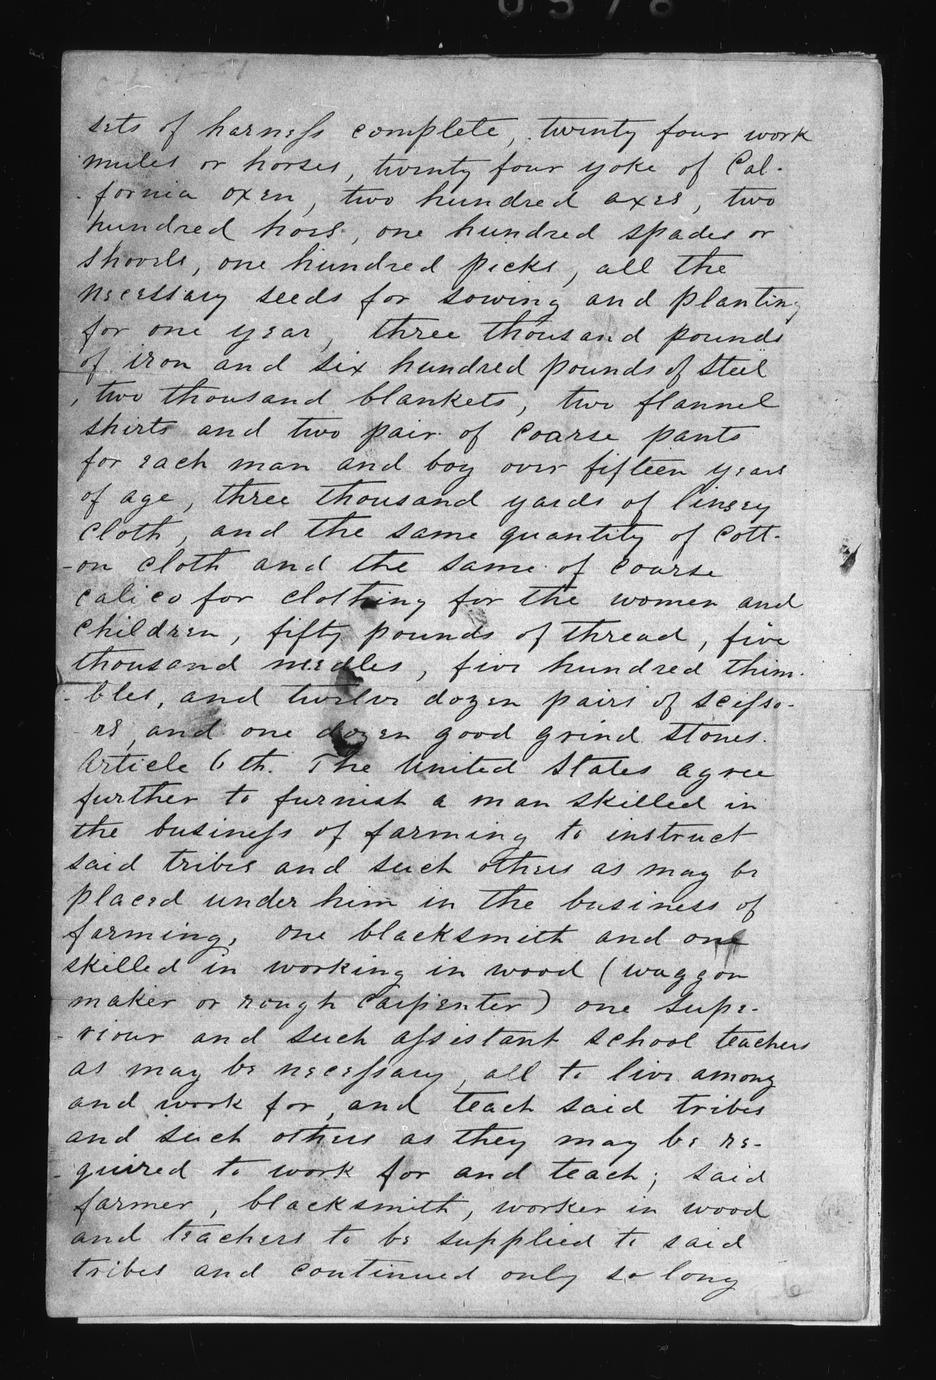 0578
sets of harness complete, twenty four work
mules or horses, twenty four yoke of Cal-
-fornia oxen, two hundred axes, two
hundred hoes, one hundred spades or
shovels, one hundred picks, all the
necessary seeds for sowing and planting
for one year, three thousand pounds
of iron and six hundred pounds of steel
, two thousand blankets, two flannel
shirts and two pair of coarse pants
for each man and boy over fifteen years
of age, three thousand yards of linsey
cloth, and the same quantity of cott-
-on cloth and the same of coarse
calico for clothing for the women and
children, fifty pounds of thread, five
thousand needles, five hundred thim-
-bles, and twelve dozen pairs of scisso-
-rs, and one dozen good grind stones.
Article 6th. The United States agree
further to furnish a man skilled in
the business of farming to instruct
said tribes and such others as may be
placed under him in the business of
farming, one blacksmith and one
skilled in working in wood (waggon
maker or rough carpenter) one supe-
-riour and such assistant school teachers
as may be necessary, all to live among
and work for, and teach said tribes
and such others as they may be re-
-quired to work for and teach; said
farmer, blacksmith, worker in wood
and teachers to be supplied to said
tribes and continued only so long